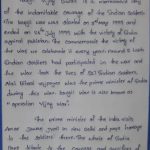 Kargil Vijay Diwas is a memorable day
of the indomitable courage of the Indian soldiers.
The Kargil war was started on 3rd may 1999 and
ended on 26th July 1999 with the victory of India
against pakistan. The commemorate the victory of
the war we celebrate it every year. Around 2 lakh
Indian soldiers had participated in the war and
the war took the lives of 527 Indian soldiers.
Atal Bihari vajpayee was the prime minister of India
during this war. Kargil war is also known as
"operation Vijay War".
The prime minister of the india visits
Amar Jawan Jyoti in new delhi and pays homage
to the soldiers The whole of India